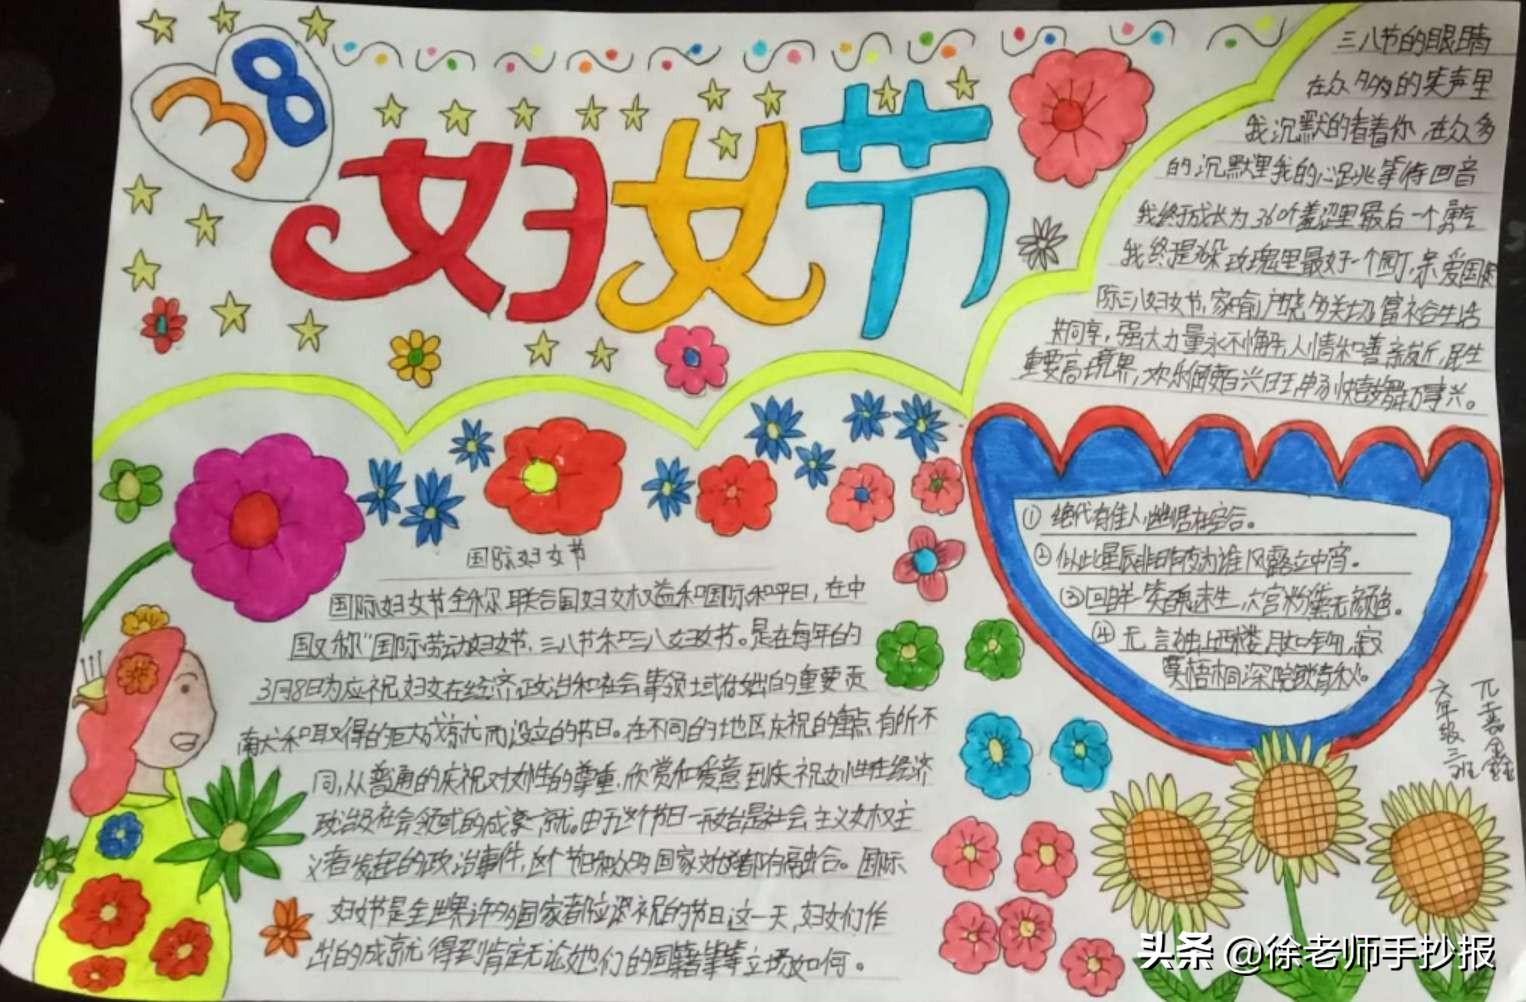 38
妇女节
三八节的眼睛
在众多的笑声里
我沉默的看着你,在众多
的沉默里我的心跳等待回音
我终于成长为36个羞涩里最后一个勇气
玫瑰里最好一个
际三八妇女节,家喻户晓多关切,富裕生活
共同享,强大力量永不懈,人情和善亲友近,民生
重要高境界,欢乐
国际妇女节
国际妇女节全称联合国妇女权益和国际和平日,在中
国又称“国际劳动妇女节、三八节和三八妇女节。是在每年的
3月8日为庆祝妇女在经济、政治和社会等领域做出的重要贡
南犬和取得的巨大成就而设立的节日。在不同的地区庆祝的重点有所不
同,从普通的庆祝对女性的尊重、欣赏和爱意到庆祝女性在经济
政治及社会领域的成就。由于这个节日一开始是社会主义女权主
义者发起的政治事件,这个节日和众多国家文化都有融合。国际
妇女节是全世界许多国家都庆祝的节日这一天,妇女们作
出的成就得到肯定无论她们的国籍等等立场如何。
① 绝代有佳人,幽居在空谷。
② 似此星辰非昨夜,为谁风露立中宵。
③ 回眸一笑百媚生,六宫粉黛无颜色。
④ 无言独上西楼,月如钩,寂
寞梧桐深院锁清秋。
六年级三班
头条 @徐老师手抄报